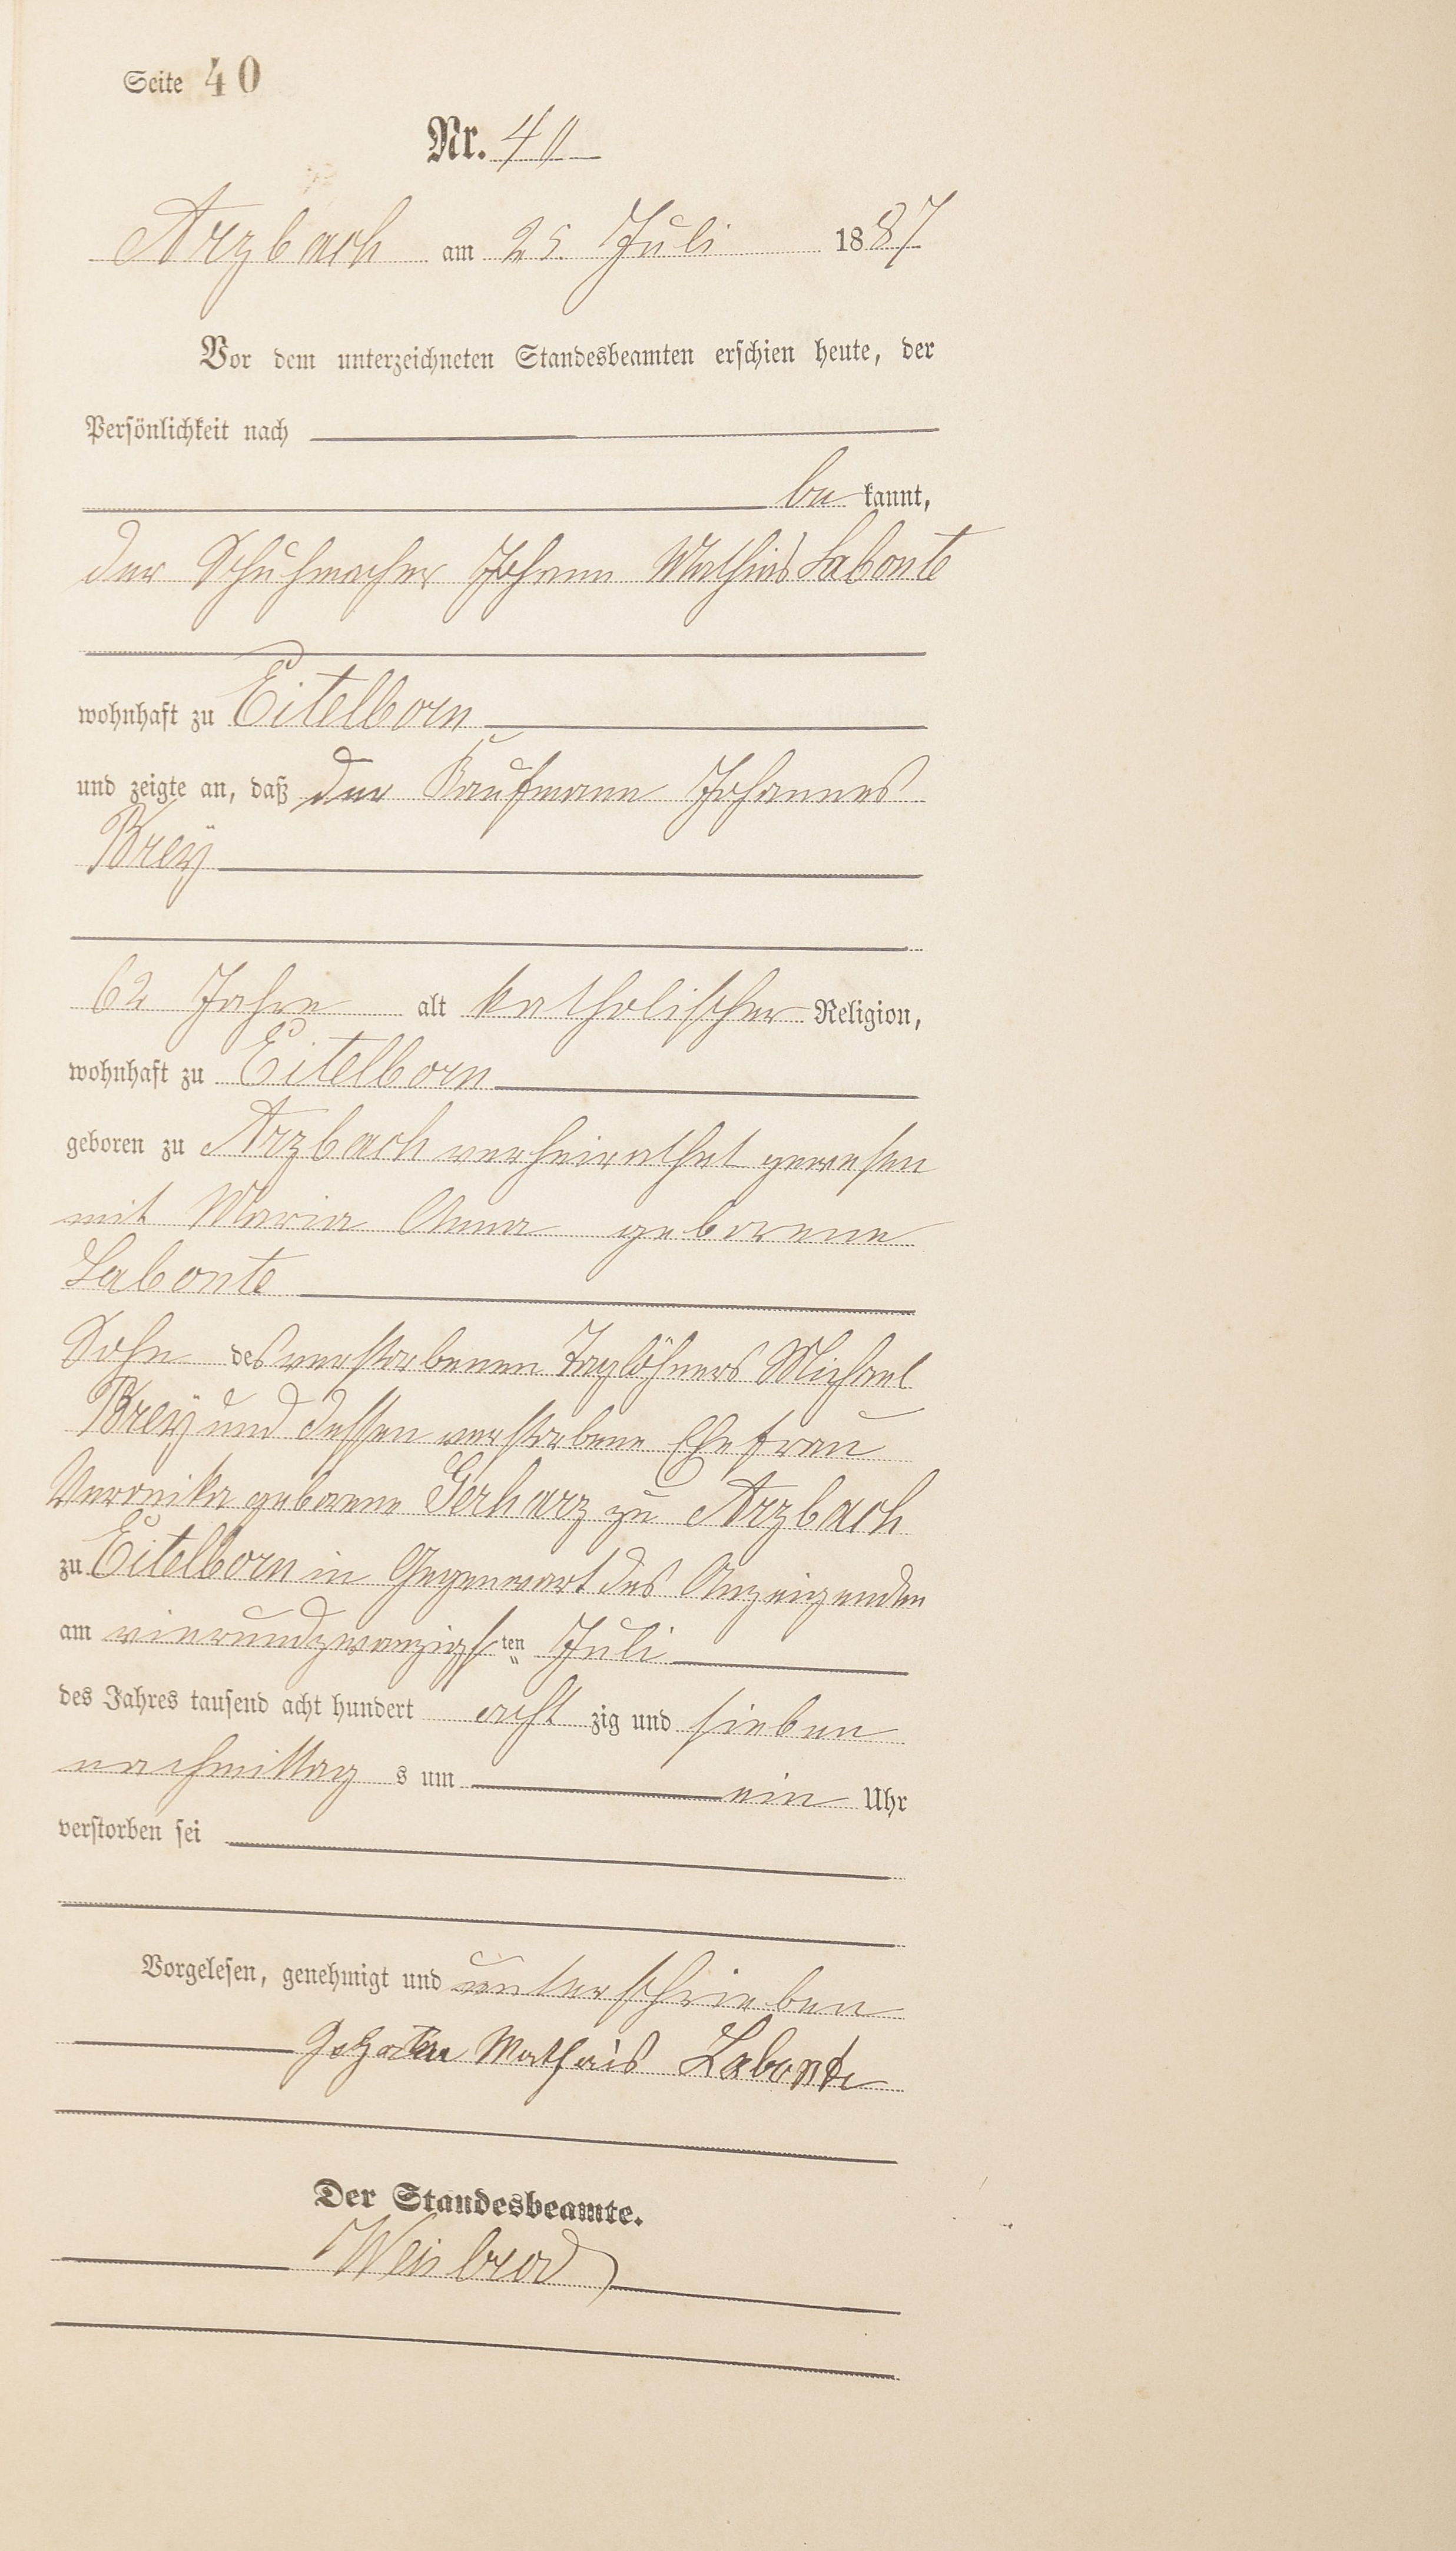 Seite 40
Nr. 40
Arzbach am 25. Juli 1887
Vor dem unterzeichneten Standesbeamten erschien heute, der
Persönlichkeit nach
be kannt,
der Schuhmacher Johann Mathias Labonte
wohnhaft zu Eitelborn
und zeigte an, daß der Kaufmann Johannes
Breÿ
62 Jahre alt katholischer Religion,
wohnhaft zu Eitelborn
geboren zu Arzbach verheirathet gewesen
mit Maria Anna geborene
Labonte
Sohn des verstorbenen Taglöhners Michael
Breÿ und dessen verstorbene Ehefrau
Veronika geborene Gerharz zu Arzbach
zu Eitelborn in Gegenwart des Anzeigenden
am vierundzwanzigs ten Juli
des Jahres tausend acht hundert acht zig und sieben
nachmittag s um ein Uhr
verstorben sei
Vorgelesen, genehmigt und unterschrieben
Mathais Labonte
Der Standesbeamte.
Weisbrod